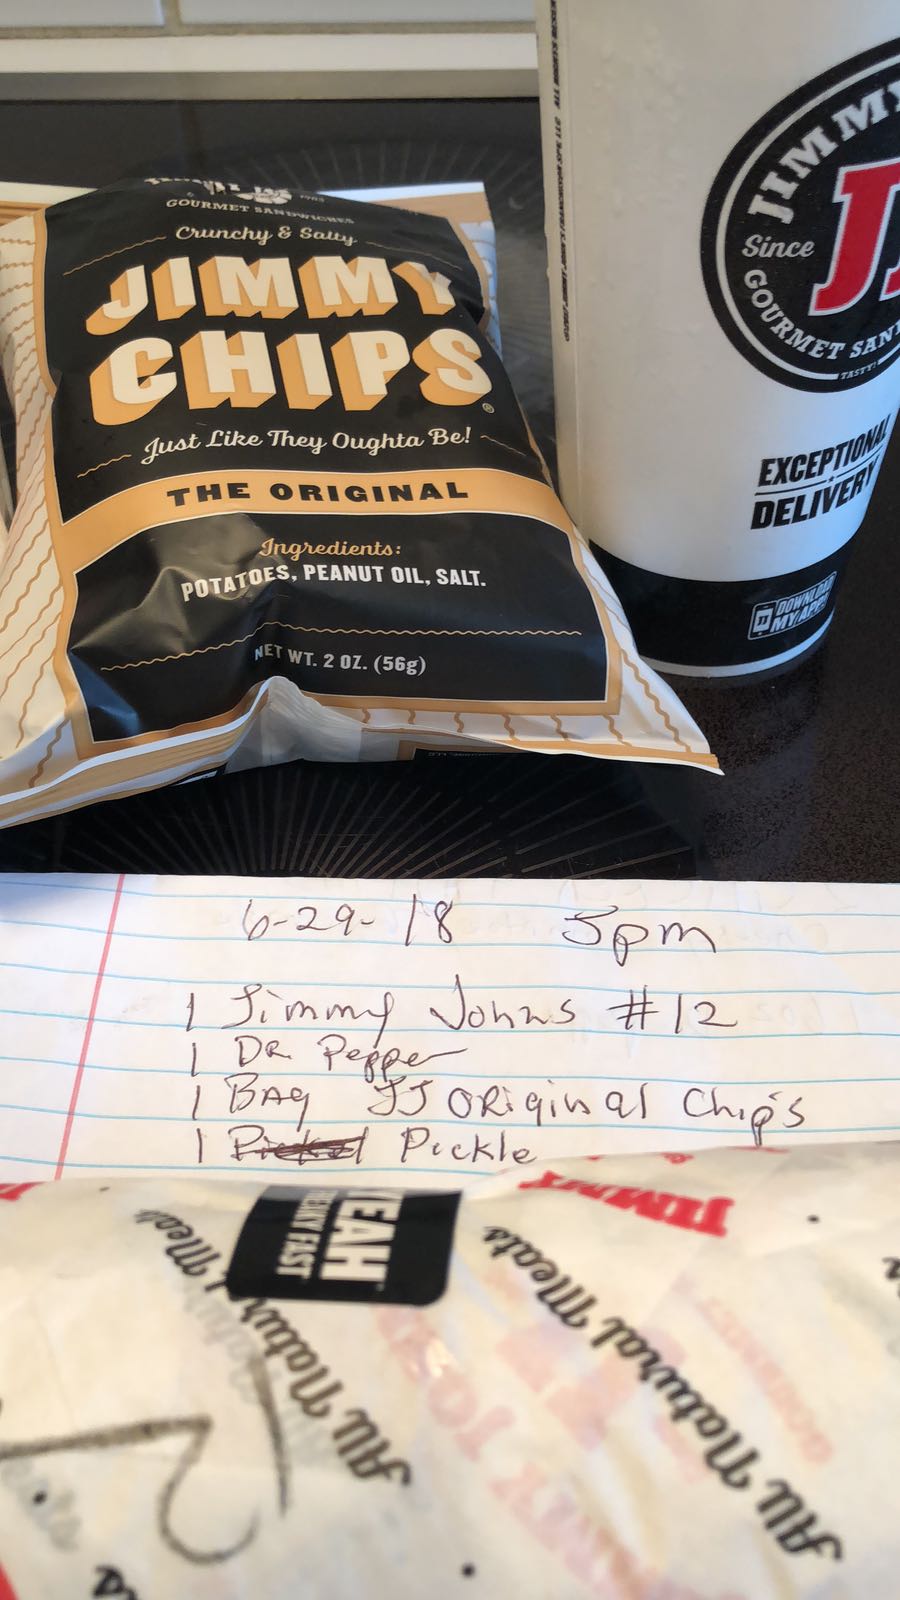 GOURMET SANDWICHES
Crunchy & Salty
JIMMY
CHIPS®
Just Like They Oughta Be!
THE ORIGINAL
Ingredients:
POTATOES, PEANUT OIL, SALT.
NET WT. 2 OZ. (56g)
JIMMY
Since
JJ
GOURMET SAN
TASTY!
EXCEPTIONAL
DELIVERY
DOWNLOAD
MY APP!
6-29-18 5pm
1 Jimmy Johns #12
1 DR. Pepper
1 BAg JJ ORiginal Chips
1 Pickle
YEAH
FREAKY FAST
All Natural Meats
All Natural Meats
12